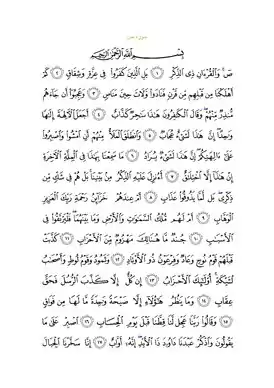 سورة ص
بِسْمِ اللَّهِ الرَّحْمَٰنِ الرَّحِيمِ
صٓ وَالْقُرْءَانِ ذِي الذِّكْرِ ١ بَلِ الَّذِينَ كَفَرُوا فِي عِزَّةٍ وَشِقَاقٍ ٢ كَمْ
أَهْلَكْنَا مِن قَبْلِهِم مِّن قَرْنٍ فَنَادَوا وَّلَاتَ حِينَ مَنَاصٍ ٣ وَعَجِبُوا أَن جَاءَهُم
مُّنذِرٌ مِّنْهُمْ وَقَالَ الْكَٰفِرُونَ هَٰذَا سَٰحِرٌ كَذَّابٌ ٤ أَجَعَلَ الْءَالِهَةَ إِلَٰهًا
وَٰحِدًا إِنَّ هَٰذَا لَشَيْءٌ عُجَابٌ ٥ وَانطَلَقَ الْمَلَأُ مِنْهُمْ أَنِ امْشُوا وَاصْبِرُوا
عَلَىٰ ءَالِهَتِكُمْ إِنَّ هَٰذَا لَشَيْءٌ يُرَادُ ٦ مَا سَمِعْنَا بِهَٰذَا فِي الْمِلَّةِ الْءَاخِرَةِ
إِنْ هَٰذَا إِلَّا اخْتِلَٰقٌ ٧ أَءُنزِلَ عَلَيْهِ الذِّكْرُ مِن بَيْنِنَا بَلْ هُمْ فِي شَكٍّ مِّن
ذِكْرِي بَل لَّمَّا يَذُوقُوا عَذَابِ ٨ أَمْ عِندَهُمْ خَزَائِنُ رَحْمَةِ رَبِّكَ الْعَزِيزِ
الْوَهَّابِ ٩ أَمْ لَهُم مُّلْكُ السَّمَٰوَٰتِ وَالْأَرْضِ وَمَا بَيْنَهُمَا فَلْيَرْتَقُوا فِي
الْأَسْبَٰبِ ١٠ جُندٌ مَّا هُنَالِكَ مَهْزُومٌ مِّنَ الْأَحْزَابِ ١١ كَذَّبَتْ
قَبْلَهُمْ قَوْمُ نُوحٍ وَعَادٌ وَفِرْعَوْنُ ذُو الْأَوْتَادِ ١٢ وَثَمُودُ وَقَوْمُ لُوطٍ وَأَصْحَٰبُ
لْـَٔيْكَةِ أُولَٰئِكَ الْأَحْزَابُ ١٣ إِن كُلٌّ إِلَّا كَذَّبَ الرُّسُلَ فَحَقَّ
عِقَابِ ١٤ وَمَا يَنظُرُ هَٰؤُلَاءِ إِلَّا صَيْحَةً وَٰحِدَةً مَّا لَهَا مِن فَوَاقٍ
١٥ وَقَالُوا رَبَّنَا عَجِّل لَّنَا قِطَّنَا قَبْلَ يَوْمِ الْحِسَابِ ١٦ اصْبِرْ عَلَىٰ مَا
يَقُولُونَ وَاذْكُرْ عَبْدَنَا دَاوُۥدَ ذَا الْأَيْدِ إِنَّهُ أَوَّابٌ ١٧ إِنَّا سَخَّرْنَا الْجِبَالَ